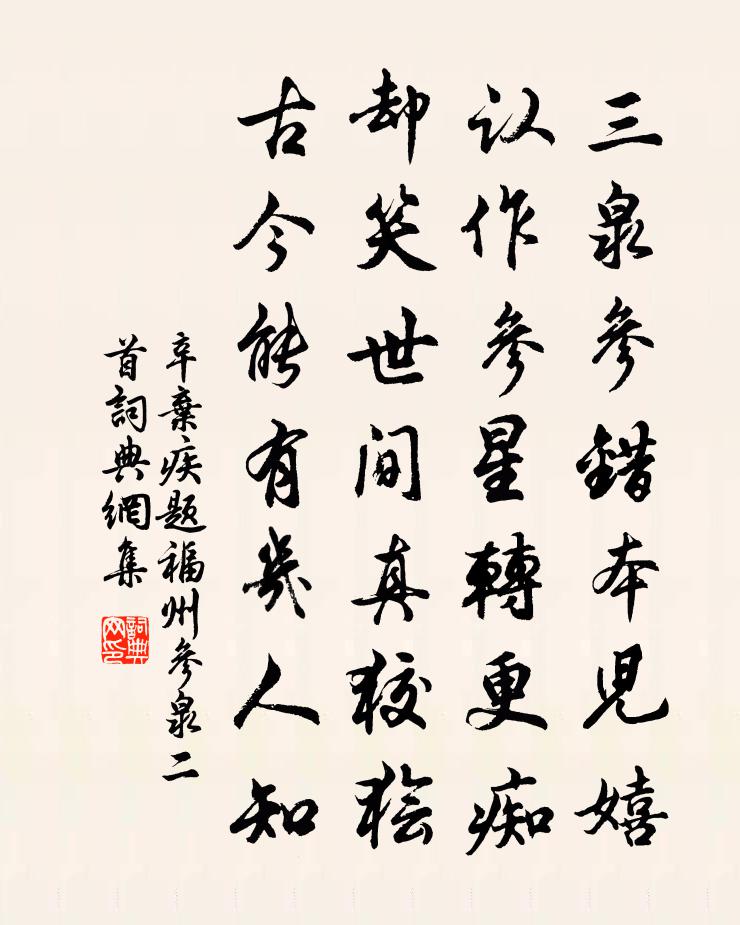 三泉參錯本児嬉
认作參星轉更痴
却笑世间真狡狯
古今能有幾人知
辛棄疾题福州參泉二
首詞典網集
詞典
网印